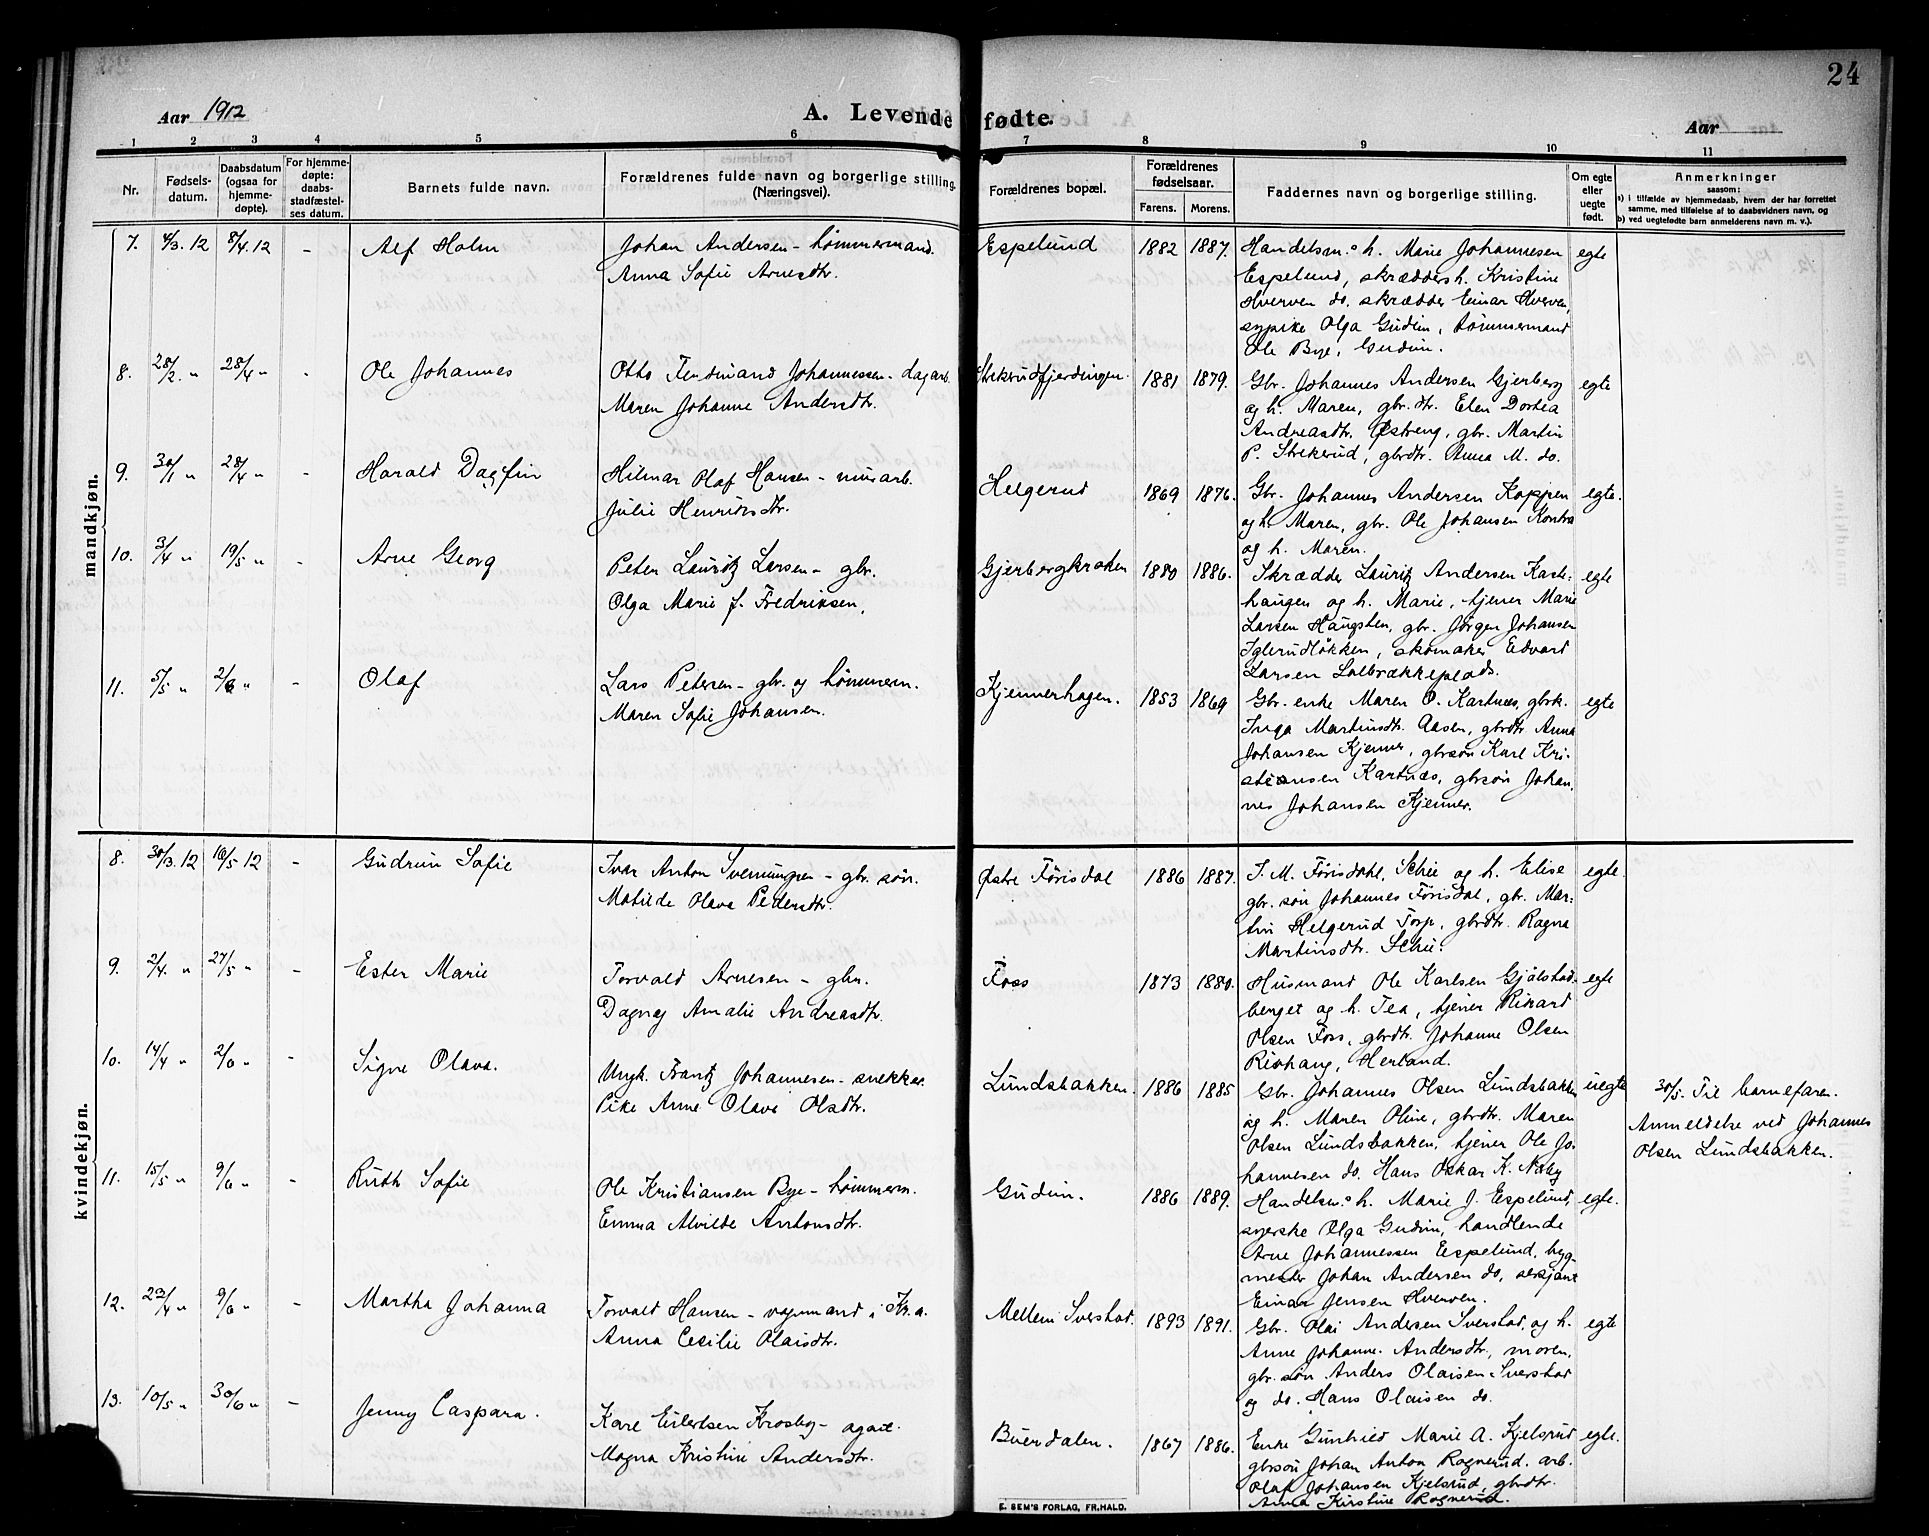 24
Aar 1912
A. Levende fødte.
Aar
1 2 3 4 5 6 7 8 9 10 11
Nr.
Fødsels-
datum.
Daabsdatum
(ogsaa for
hjemme-
døpte).
For hjemme-
døpte:
daabs-
stadfæstel-
ses datum.
Barnets fulde navn.
Forældrenes fulde navn og borgerlige stilling.
(Næringsvei).
Forældrenes bopæl.
Forældrenes
fødselsaar.
Farens. Morens.
Faddernes navn og borgerlige stilling.
Om egte
eller
uegte
født.
Anmerkninger
saasom:
a) i tilfælde av hjemmedaab, hvem der har forrettet
samme, med tilføielse af to daabsvidners navn, og
b) ved uegtefødte barn anmelderens navn m. v.).
mandkjøn.
7. 4/3. 12 8/4. 12 - Alf Holm
Johan Andersen - tømmermand.
Anna Sofie Arnesdtr.
Espelund 1882 1887.
Handelsm.s h. Marie Johannesen
Espelund, skrædders h. Kristine
Hverven do. skrædder Einar Hverven,
sypike Olga Gudim, tømmermand
Ole Bye, Gudim.
egte
8. 28/2. " 28/4 " - Ole Johannes
Otto Ferdinand Johannessen - dagarb.
Maren Johanne Andersdtr.
Strekerudfjerdingen. 1881 1879.
Gbr. Johannes Andersen Gjerberg
og h. Maren, gbr.dtr. Elen Dortea
Andreasdtr. Østreng, gbr. Martin
P. Strekerud, gbrdtr. Anna M. do.
egte
9. 30/1 " 28/4 " - Harald Dagfin
Hilmar Olaf Hansen - murarb.
Julie Henriksdtr.
Helgerud 1869 1876.
Gbr. Johannes Andersen Koppen
og h. Maren, gbr. Ole Johansen Kontra
og h. Maren.
egte.
10. 3/4 " 19/5 " - Arne Georg
Peter Lauritz Larsen - gbr.
Olga Marie f. Fredriksen,
Gjerbergkroken 1880 1886.
Skrædder Lauritz Andersen Kaste-
haugen og h. Marie, tjener Marie
Larsen Haugsten, gbr. Jørgen Johansen
Iglerudløkken, skomaker Edvart
Larsen Lolbrækkeplads.
egte
11. 5/5 " 2/6 " - Olaf
Lars Petersen - gbr. og tømmerm.
Maren Sofie Johansen.
Kjennerhagen. 1853 1869
Gbr. enke Maren O. Kartnes, gbrk.
Inga Martinsdtr. Aasen, gbrdtr Anna
Johansen Kjenner, gbrsøn Karl Kri-
stiansen Kartnæs, gbrsøn Johan-
nes Johansen Kjenner.
egte
kvindekjøn.
8. 30/3. 12 16/5 12 - Gudrun Sofie
Ivar Anton Svenungsen - gbr. søn.
Matilde Olava Pedersdtr.
Østre Førisdal 1886 1887.
I. M. Førisdahl, Schie og h. Elise
gbr. søn Johannes Førisdal, gbr. Mar-
tin Helgerud Torp, gbrdtr. Ragna
Martinsdtr. Schie.
egte.
9. 2/4. " 27/5 " - Ester Marie
Torvald Arnesen - gbr.
Dagny Amalie Andreasdtr.
Foss 1873 1880.
Husmand Ole Karlsen Gjølstad-
berget og h. Tea, tjener Rikard
Olsen Foss, gbrdtr. Johanne Olsen
Rishaug, Herland.
egte
10. 14/4 " 2/6 " - Signe Olava.
Ungk. Frantz Johannesen - snekker.
Pike Anne Olava Olsdtr.
Lundsbakken. 1886 1885
Gbr. Johannes Olsen Lundsbakken
og h. Maren Oline, gbrdtr. Maren
Olsen Lundsbakken, tjener Ole Jo-
hannesen do. Hans Oskar K. Næby
uegte
30/5. Til barnefaren.
Anmeldelse ved Johannes
Olsen Lundsbakken.
11. 15/5 " 9/6 " - Ruth Sofie
Ole Kristiansen Bye - tømmerm.
Emma Alvilde Antonsdtr.
Gudim. 1886 1889.
Handelsm.s h. Marie J. Espelund,
syerske Olga Gudim, handlende
Arne Johannessen Espelund, byg-
mester Johan Andersen do, sersjant
Einar Jensen Hverven.
egte.
12. 23/4 " 9/6 " - Martha Johanna
Torvald Hansen - vognmand i Kr.a.
Anna Cecilie Olaisdtr.
Mellem Sverstad. 1893 1891.
Gbr. Olai Andersen Sverstad, og h.
Anne Johanne Andersdtr, moren,
gbr. søn Anders Olaisen Sverstad
og do. Hans Olaisen do.
egte
13. 10/5 " 30/6 " - Jenny Caspara.
Karl Eilertsen Krosby - agent.
Magna Kristine Andersdtr.
Buerdalen. 1867 1886.
Enke Gunhild Marie A. Kjelsrud
gbrsøn Johan Anton Rognerud. arb.
Olaf Johansen Kjelsrud, gbrdtr.
Anna Kirstine Rognerud.
egte.
E. SEM'S FORLAG, FR.HALD.